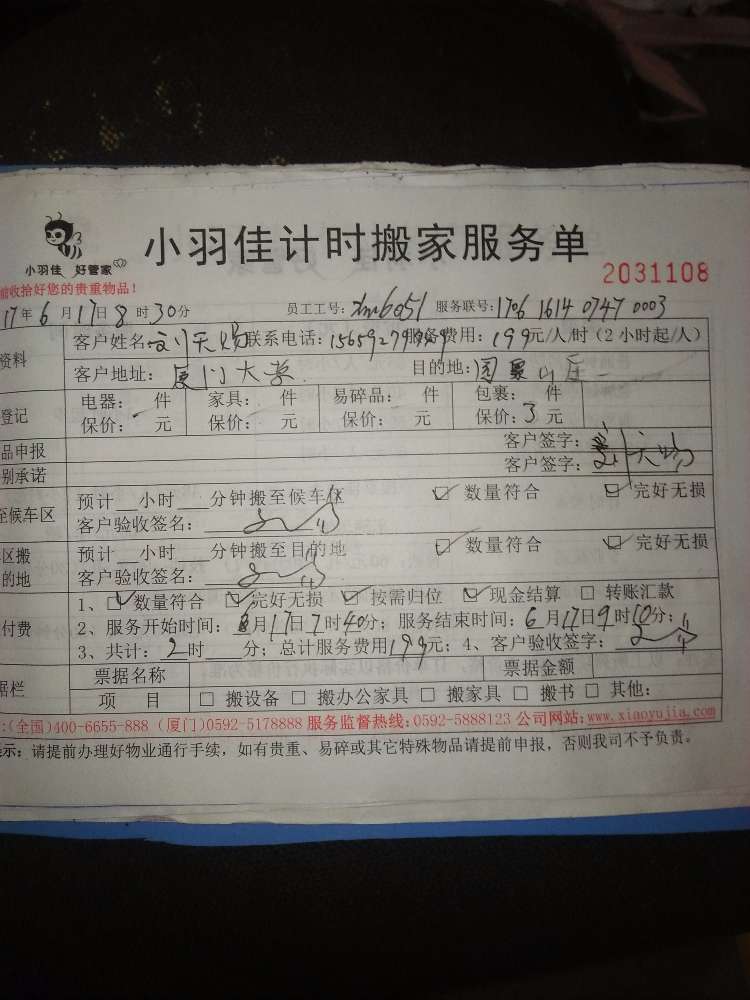 小羽佳 好管家
小羽佳计时搬家服务单
2031108
前收拾好您的贵重物品！
17年6月17日8时30分 员工工号：xm6051 服务联号：1706 1614 0747 0003
资料 客户姓名： 天赐 联系电话： 服务费用：199元/人/时（2小时起/人）
客户地址：厦门大学 目的地：
登记 电器： 件 家具： 件 易碎品： 件 包裹： 件
保价： 元 保价： 元 保价： 元 保价：3元
品申报 客户签字：
别承诺 客户签字：
至候车区 预计__小时___分钟搬至候车区 ☑ 数量符合 ☑ 完好无损
客户验收签名：
区搬 预计__小时___分钟搬至目的地 ☑ 数量符合 ☑ 完好无损
的地 客户验收签名：
付费 1、☑ 数量符合 ☑ 完好无损 ☑ 按需归位 ☑ 现金结算 □ 转账汇款
2、服务开始时间：6月17日7时40分；服务结束时间：6月17日9时10分；
3、共计：2时___分；总计服务费用199元；4、客户验收签字：
据栏 票据名称 票据金额
项 目 □ 搬设备 □ 搬办公家具 □ 搬家具 □ 搬书 □ 其他：
:(全国)400-6655-888 (厦门)0592-5178888 服务监督热线：0592-5888123 公司网站：www.xiaoyujia.com
示：请提前办理好物业通行手续，如有贵重、易碎或其它特殊物品请提前申报，否则我司不予负责。